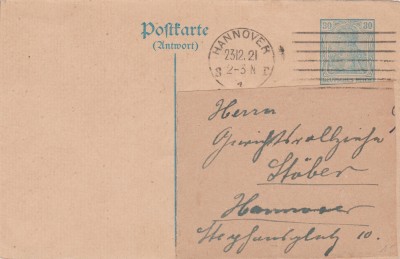 Postkarte
(Antwort)
30 30
HANNOVER
23.12.21
2-3 N
1
Herrn
Gerichtsvollzieher
Stöber
Hannover
Stephansplatz 10.